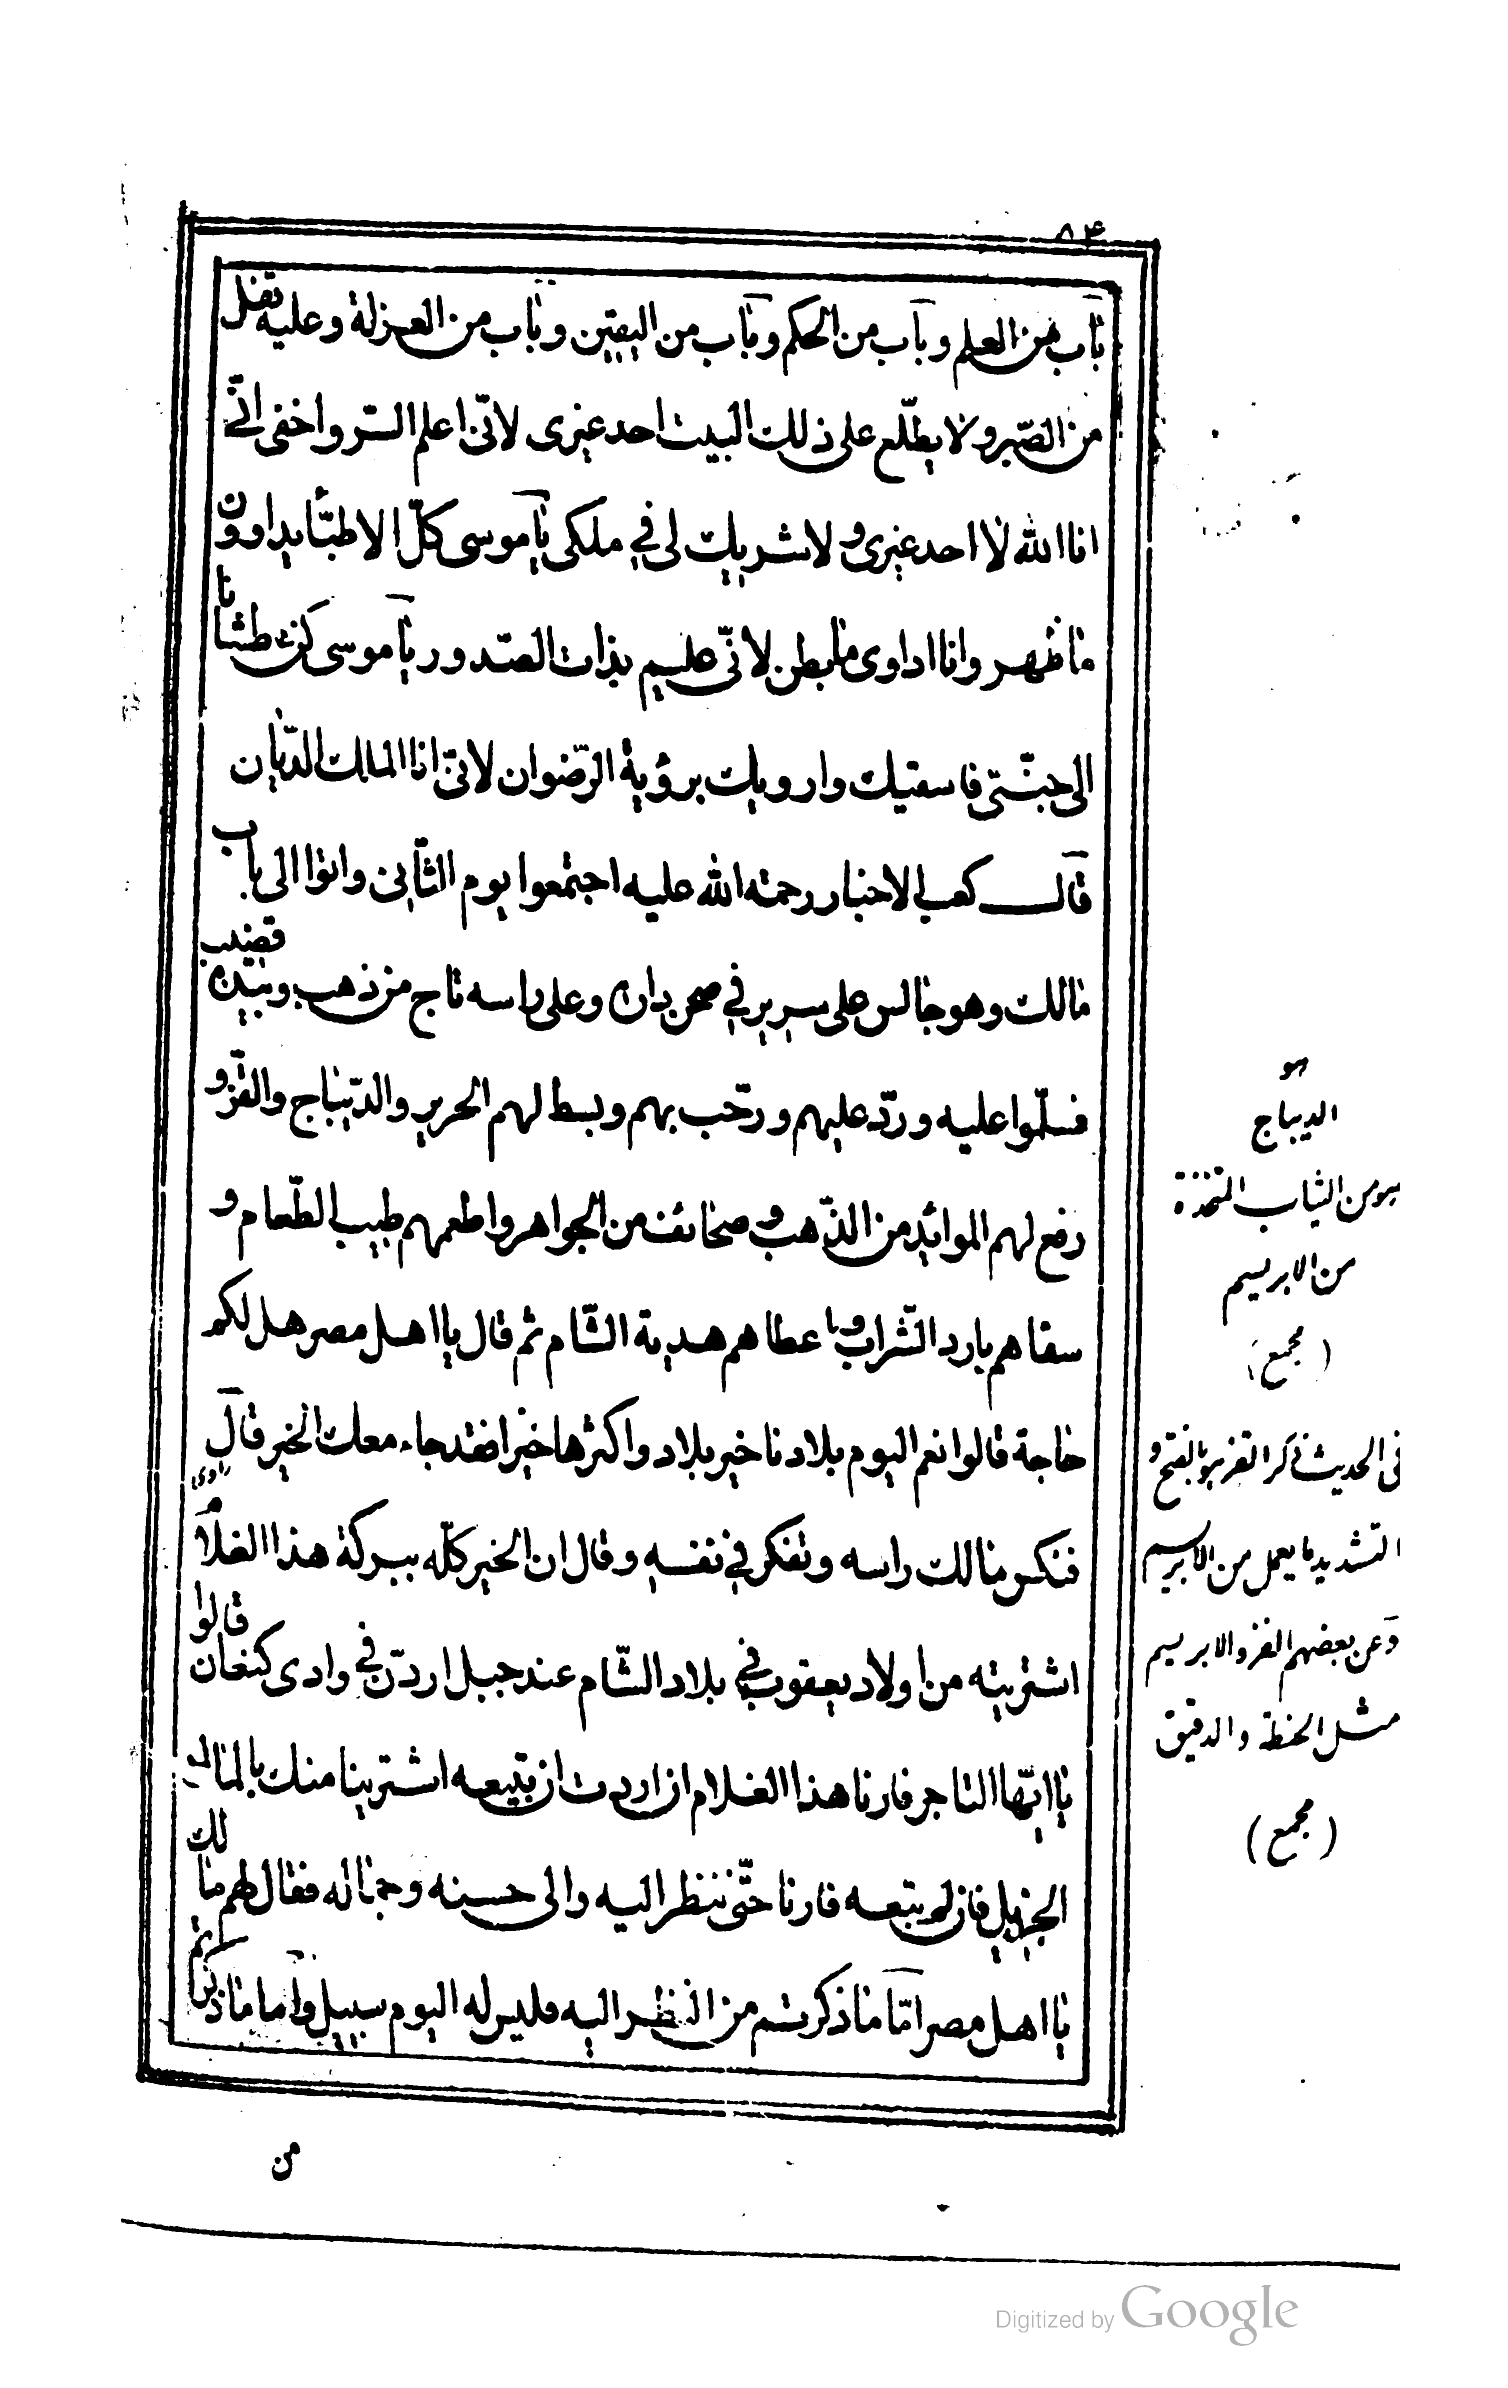 ٨٤
باب من العلم وباب من الحكم وباب من اليقين وباب من العزلة وعليه قفل
من الصّبر ولا يطّلع على ذلك البيت احد غيرى لانّى اعلم السّر واخفى انّى
انا الله لا احد غيرى ولا شريك لى في ملكى يا موسى كلّ الاطبّآء يداوون
ما ظهر وانا اداوى ما بطن لانّى عليم بذات الصّدور يا موسى كن عطشانا
الى جنّتى فاسقيك وارويك برؤية الرّضوان لانّى انا المالك الدّيان
قال كعب الاحبار رحمته الله عليه اجتمعوا يوم الثّانى واتوا الى باب
مالك وهو جالس على سرير في صحن داره وعلى راسه تاج من ذهب وبيده قضيب
فسلّموا عليه وردّ عليهم ورحّب بهم وبسط لهم الحرير والدّيباج والقزّ و
رفع لهم الموائد من الذّهب وصحائف من الجواهر واطعمهم طيب الطّعام و
سقاهم بارد الشّراب واعطاهم هدية الشّام ثم قال يا اهل مصر هل لكم
حاجة قالوا نعم اليوم بلادنا خير بلاد واكثرها خيرا فقد جاء معك الخير قال راوى
فنكس مالك راسه وتفكر في نفسه وقال ان الخير كلّه ببركة هذا الغلام
اشتريته من اولاد يعقوب في بلاد الشّام عند جبل اردنّ في وادى كنعان قالوا
يا ايّها التاجر فارنا هذا الغلام ان اردت ان تبيعه اشترينا منك بالمال
الجزيل فان لم تبعه فارنا حتّى ننظر اليه والى حسنه وجماله فقال لهم مالك
يا اهل مصر امّا ما ذكرتم من النظر اليه فليس له اليوم سبيل واما ما ذكرتم
من
هو
الديباج
هو من الثياب المتخذة
من الابريسم
(مجمع)
فى الحديث ذكر القز هو بالفتح و
التشديد ما يعمل من الابريسم
وعن بعضهم القز والابريسم
مثل الحنطة والدقيق
(مجمع)
Digitized by Google